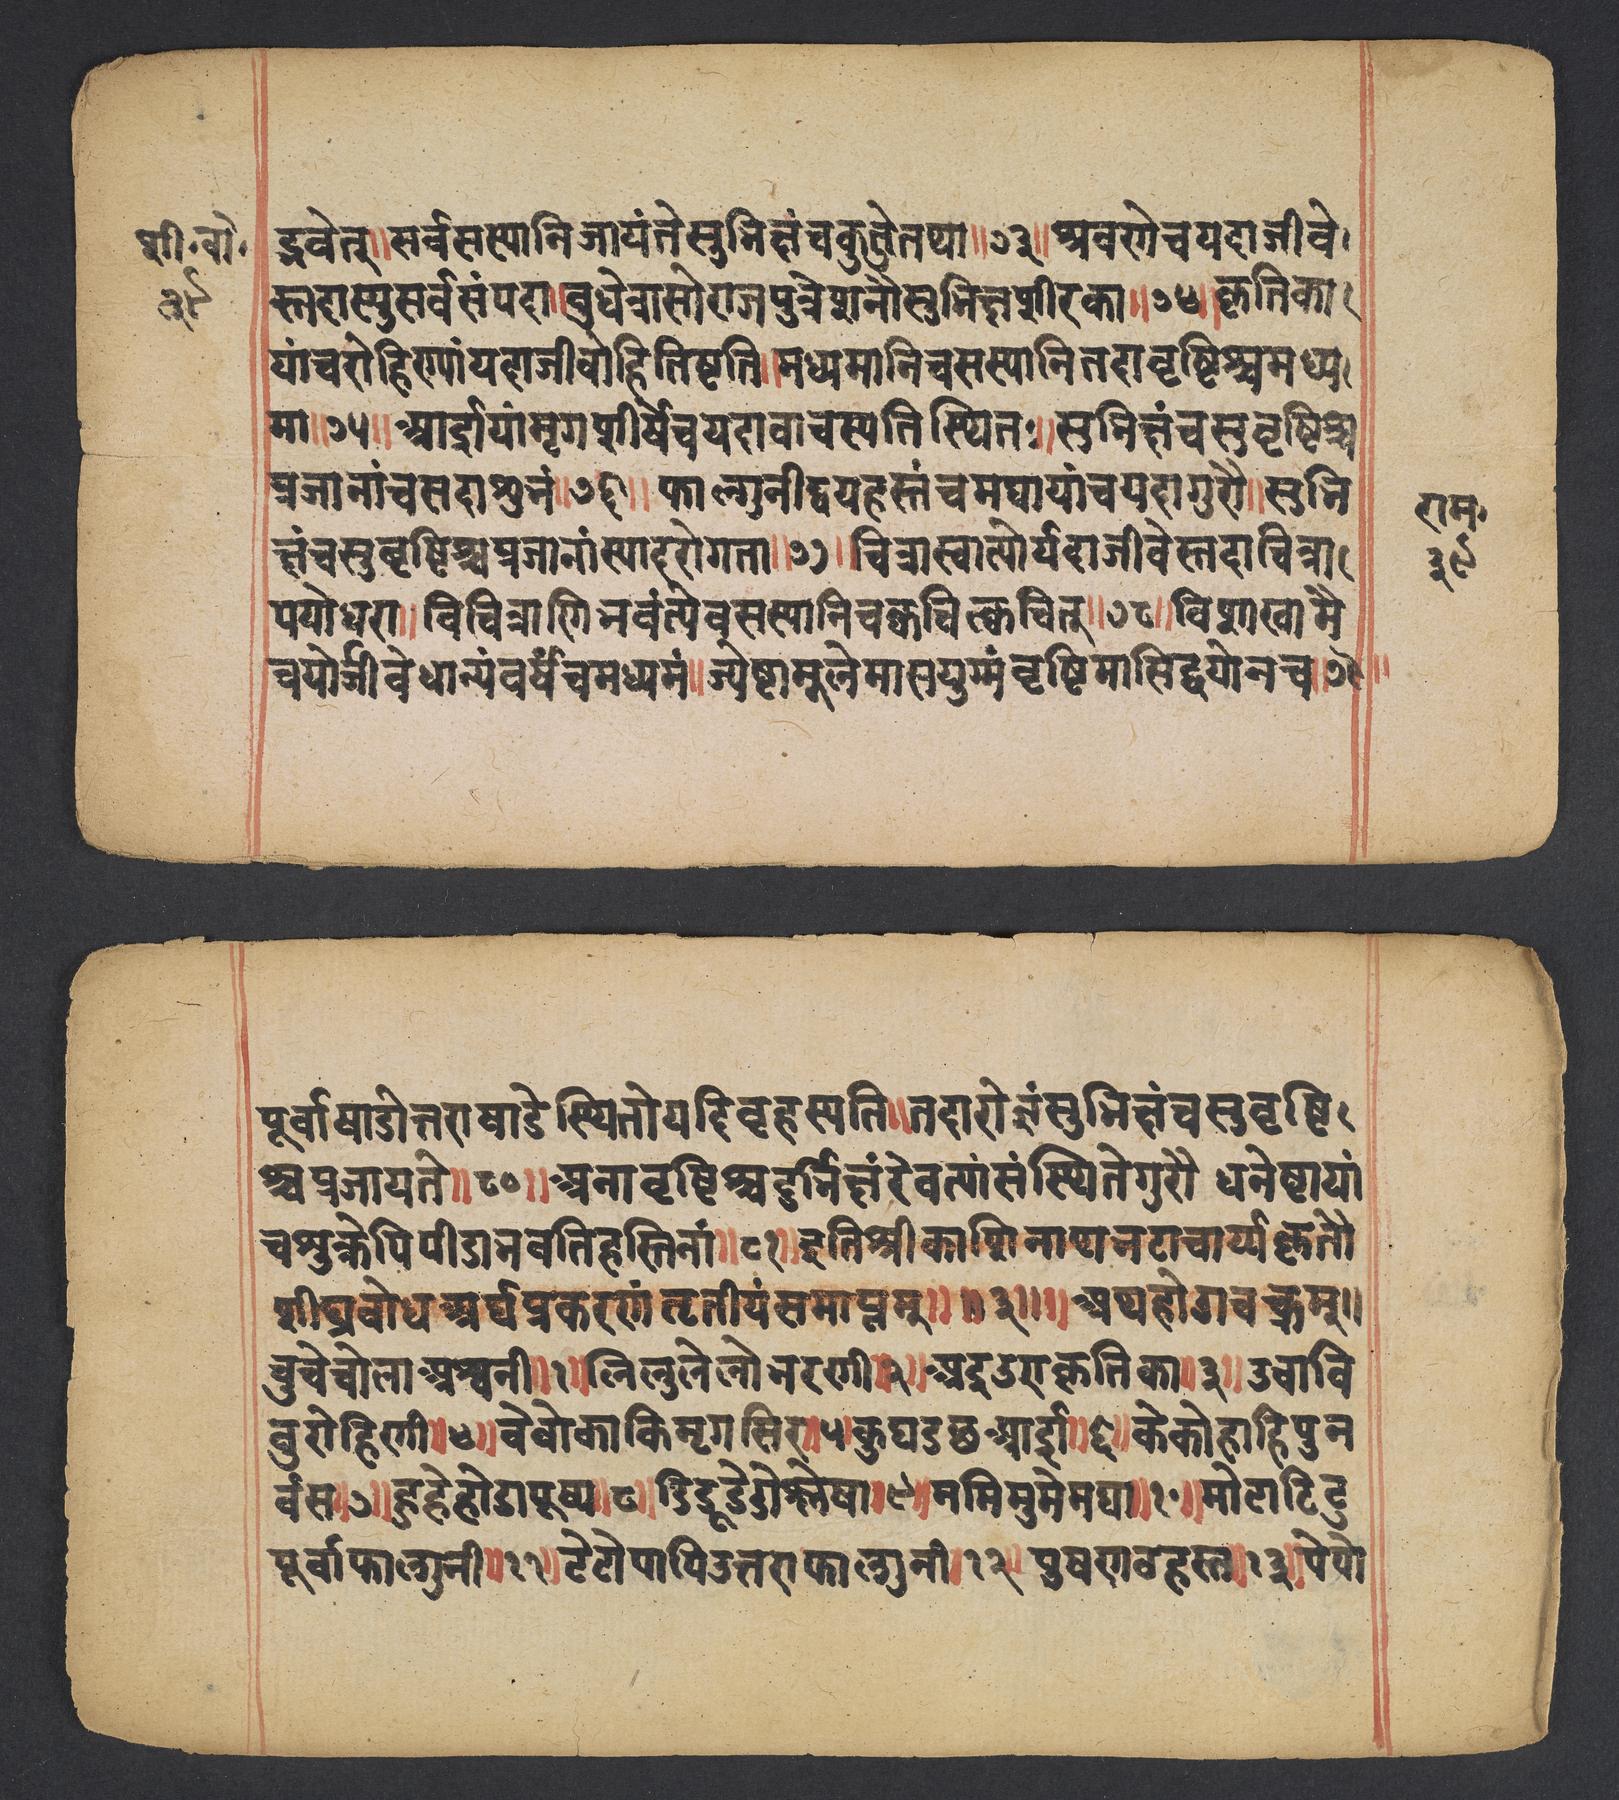 शी॰बो॰
३९
द्भवेत्॥सर्वसस्यानिजायंतेसुभिक्षंचकुतुेतथा॥७३॥श्रवणेचयदाजीवे
स्तदास्युसर्वसंपदा॥बुधेत्रासोराजपुत्रेशनौसुभिक्षशीरका॥७४॥कृतिका
यांचरोहिण्यांयदाजीवोहितिष्टति॥मध्यमानिचसस्यानितदावृष्टिश्चमध्य
मा॥७५॥आर्द्रायांमृगशीर्षेचयदावाचस्पतिस्थितः॥सुभिक्षंचसुवृष्टिश्च
प्रजानांचसदाशुभं॥७६॥फाल्गुनीद्वयहस्तंचमघायांचयदागुरौ॥सुभि
क्षंचसुवृष्टिश्चप्रजानांस्यादरोगता॥७७॥चित्रास्वात्योर्यदाजीवेस्तदाचित्रा
पयोधरा॥विचित्राणिभवंत्येवसस्यानिचक्वचित्क्वचित्॥७८॥विशाखामै
त्रयोर्जीवेधान्यंवर्षंचमध्यमं॥ज्येष्टामूलेमासयुग्मंवृष्टिमासिद्वयोनच॥७९॥
राम॰
३९
पूर्वाषाडोत्तराषाडेस्थितोयदिवृहस्पति॥तदारोज्ञंसुभिक्षंचसुवृष्टि
श्चप्रजायते॥८०॥अनावृष्टिश्चदुर्भिक्षंरेवत्यांसंस्थितेगुरौ धनेष्टायां
चशुक्रेपिपीडाभवतिहस्तिनां॥८१॥इतिश्रीकाशिनाथभटाचार्य्यकृतौ
शीघ्रबोधअर्घप्रकरणंतृतीयंसमाप्तम्॥॥३॥॥अथहोडाचक्रम्॥
चुचेचोलाअश्वनी॥१॥लिलुलेलोभरणी॥२॥अइउएकृतिका॥३॥उवावि
वुरोहिणी॥४॥वेवोकाकिमृगसिर॥५॥कुघडछआर्द्रा॥६॥केकोहाहिपुन
र्वस॥७॥हुहेहोडापूष्य॥८॥डिडूडेडोश्लेषा॥९॥ममिमुमेमघा॥१०॥मोटाटिटु
पूर्वाफाल्गुनी॥११॥टेटोपापिउत्तराफाल्गुनी॥१२॥पुषणठहस्त॥१३॥पेपो